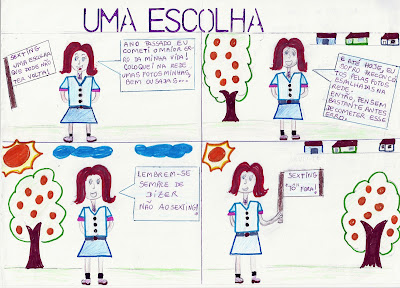 UMA ESCOLHA
SEXTING
UMA ESCOLHA
QUE PODE NÃO
TER VOLTA!
ANO PASSADO EU
COMETI O MAIOR ER-
RO DA MINHA VIDA!
COLOQUEI NA REDE
UMAS FOTOS MINHAS,
BEM OUSADAS...
E ATÉ HOJE, EU
SOFRO PRECONCEI-
TOS PELAS FOTOS
ESPALHADAS NA
REDE.
ENTÃO, PENSEM
BASTANTE ANTES
DE COMETER ESSE
ERRO.
LEMBREM-SE
SEMPRE DE
DIZER
NÃO AO SEXTING!
SEXTING
"TÔ" FORA!